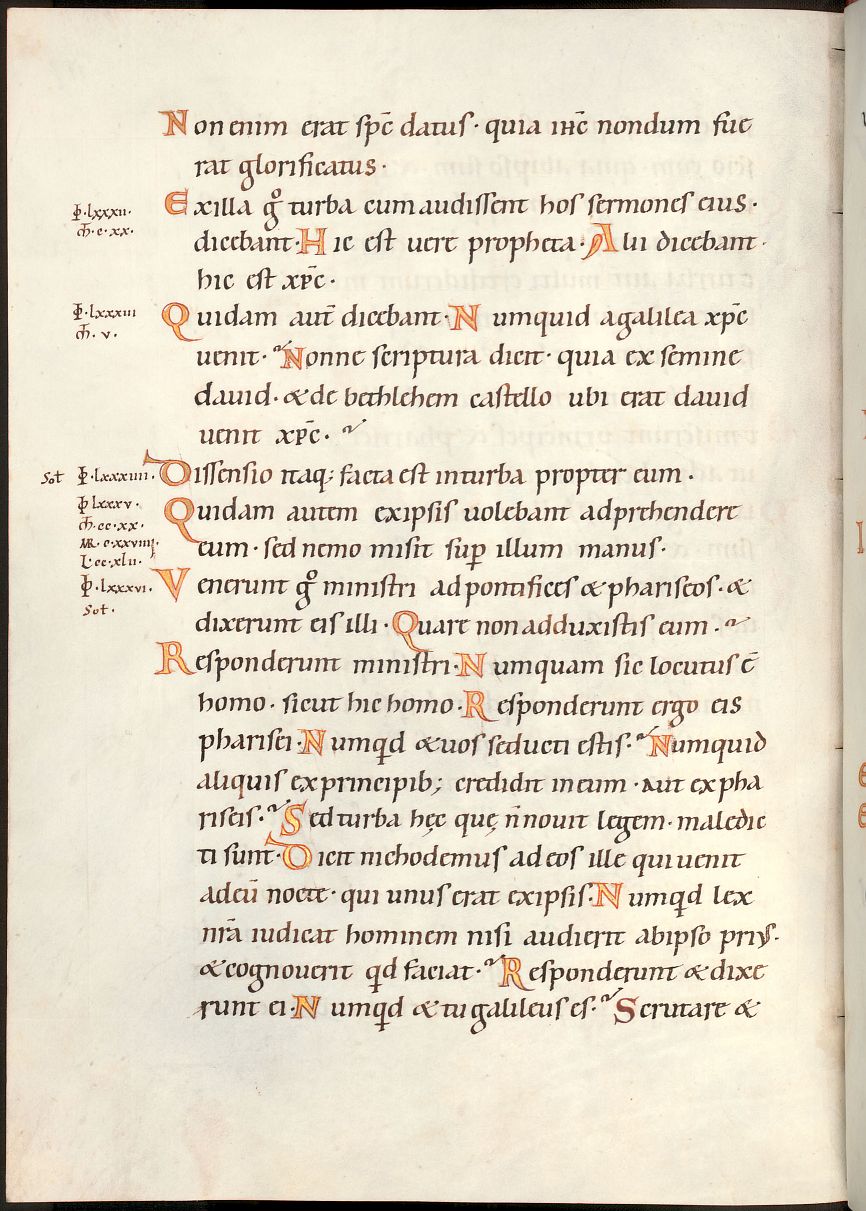 Non enim erat spc̄ datus · quia ihc̄ nondum fue
rat glorificatus ·
Ɨ · lxxxii ·
Ex illa g̊ turba cum audissent hos sermones eius ·
m̄ · c · xx ·
dicebant · Hic est vere propheta · Alii dicebant ·
hic est xpc̄ ·
Ɨ · lxxxiii
Quidam aut̄ dicebant · Numquid a galilea xpc̄
m̄ · v ·
venit · Nonne scriptura dicit · quia ex semine
david · & de bethlehem castello ubi erat david
venit xpc̄ ·
Sol Ɨ · lxxxiiii ·
Dissensio itaq; facta est in turba propter eum ·
Ɨ lxxxv ·
Quidam autem ex ipsis volebant adprehendere
m̄ · cc · xx ·
MR · c · xxviiii ·
eum · sed nemo misit sup̄ illum manus ·
L · cc · xlii ·
Ɨ · lxxxvi ·
Venerunt g̊ ministri ad pontifices & phariseos · &
Sol ·
dixerunt eis illi · Quare non adduxistis eum ·
Responderunt ministri · Numquam sic locutus ē
homo · sicut hic homo · Responderunt ergo eis
pharisei · Numqd & vos seducti estis · Numquid
aliquis ex principib; credidit in eum · aut ex pha
riseis · Sed turba hęc quę n̄ novit legem · maledic
ti sunt · Dicit nichodemus ad eos ille qui venit
ad eū nocte · qui unus erat ex ipsis · Numqd lex
nr̄a iudicat hominem nisi audierit ab ipso pri9 ·
& cognoverit qd faciat · Responderunt & dixe
runt ei · Numqd & tu galileus es · Scrutare &